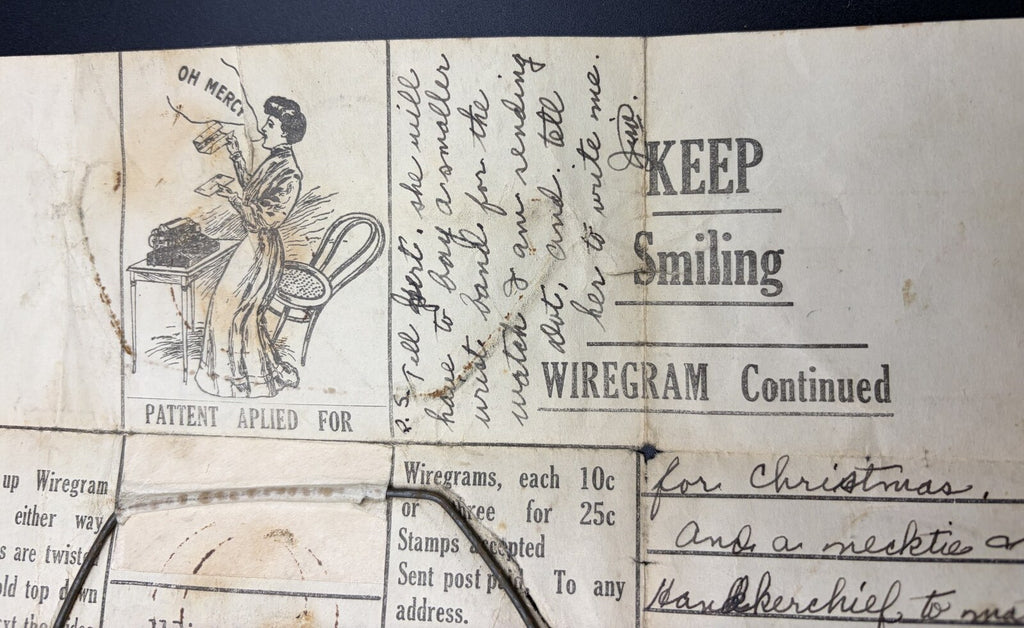 OH MERCY
PATTENT APLIED FOR
P.S. Tell Gert. she will
have to buy a smaller
wrist band for the
watch I am sending
Dot, and. tell
her to write me.
Jim.
KEEP
Smiling
WIREGRAM Continued
up Wiregram
either way
s are twiste
old top down
Wiregrams, each 10c
or three for 25c
Stamps accepted
Sent post paid. To any
address.
for Christmas.
And a necktie
Handkerchief to ma